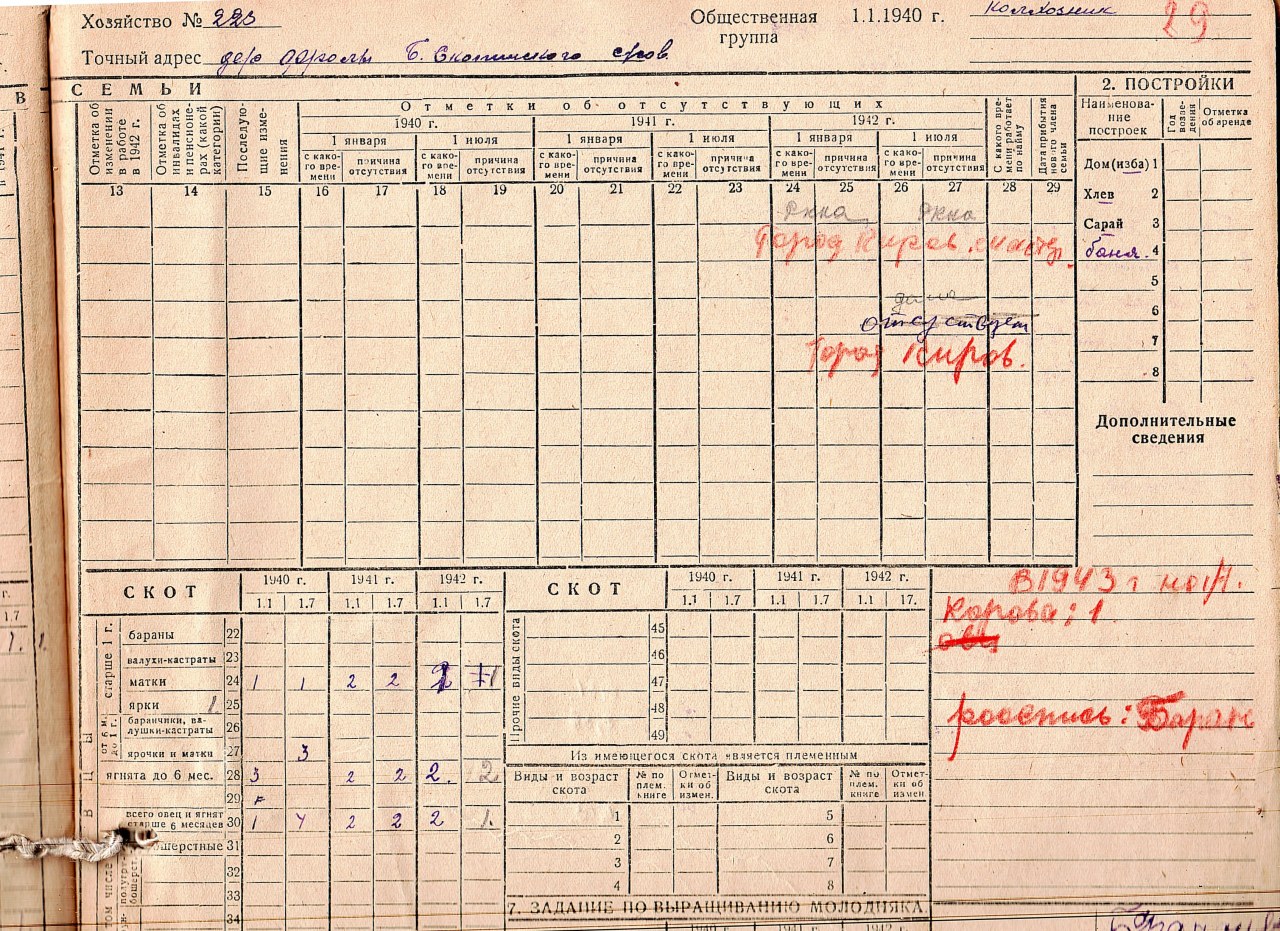 Хозяйство № 223
Общественная группа 1.1.1940 г. колхозник
29
Точный адрес дер Фролы Б. Скопинского с/сов.
В
СЕМЬИ
2. ПОСТРОЙКИ
Отметка об изменении в работе в 1942 г.
Отметка об инвалидах и пенсионерах (какой категории)
Последующие изменения
Отметки об отсутствующих
1940 г. 1941 г. 1942 г.
1 января 1 июля 1 января 1 июля 1 января 1 июля
с какого времени причина отсутствия с какого времени причина отсутствия с какого времени причина отсутствия с какого времени причина отсутствия с какого времени причина отсутствия с какого времени причина отсутствия
С какого времени работает по найму
Дата прибытия нового члена семьи
13 14 15 16 17 18 19 20 21 22 23 24 25 26 27 28 29
Город Киров
дома
отсутствует
Город Киров.
Наименование построек Год возведения Отметка об аренде
Дом (изба) 1
Хлев 2
Сарай 3
баня. 4
5
6
7
8
Дополнительные сведения
СКОТ 1940 г. 1941 г. 1942 г.
1.1 1.7 1.1 1.7 1.1 1.7
старше 1 г.
бараны 22
валухи-кастраты 23
матки 24 1 1 2 2
ярки 1. 25
от 6 м. до 1 г.
баранчики, валушки-кастраты 26
ярочки и матки 27 3
ягнята до 6 мес. 28 3 2 2 2. 2
29
всего овец и ягнят старше 6 месяцев 30 1 4 2 2 2 1.
ошерстные 31
32
33
34
СКОТ 1940 г. 1941 г. 1942 г.
1.1 1.7 1.1 1.7 1.1 17.
Прочие виды скота
45
46
47
48
49
Из имеющегося скота является племенным
Виды и возраст скота № по плем. книге Отметки об измен. Виды и возраст скота № по плем. книге Отметки об измен
1 5
2 6
3 7
4 8
7. ЗАДАНИЕ ПО ВЫРАЩИВАНИЮ МОЛОДНЯКА
1940 г. 1941 г. 1942 г.
В 1943 г
Корова; 1
роспись: